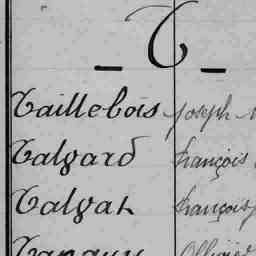 - T -
Taillebois Joseph
Talgard François
Talgat François
Tanguy